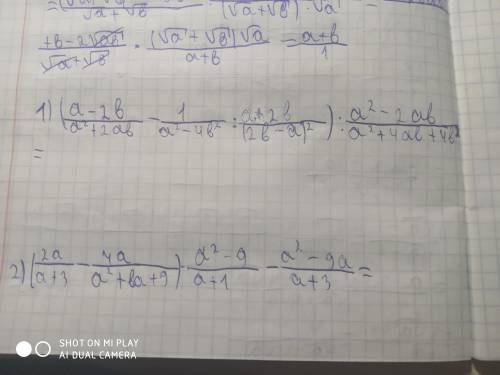 √a + √b (√a+√b) · √a
+b - 2√ab / √a + √b · (√a + √b)√a / a+b = a+b / 1
1) (a - 2b / a² + 2ab - 1 / a² - 4b² : a + 2b / (2b - a)²) : a² - 2ab / a² + 4ab + 4b²
=
2) (2a / a+3 - 4a / a² + 6a + 9) · a² - 9 / a+1 - a² - 9a / a+3 =
SHOT ON MI PLAY
AI DUAL CAMERA